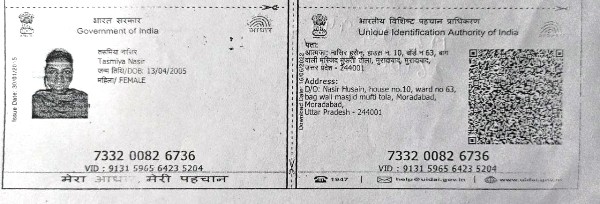 भारत सरकार
Government of India
आधार
Issue Date: 30/01/2015
तस्मिया नासिर
Tasmiya Nasir
जन्म तिथि/DOB: 13/04/2005
महिला/ FEMALE
7332 0082 6736
VID : 9131 5965 6423 5204
मेरा आधार, मेरी पहचान
भारतीय विशिष्ट पहचान प्राधिकरण
Unique Identification Authority of India
पता:
आत्मजा: नासिर हुसैन, हाउस न. 10, वॉर्ड न 63, बाग
वाली मस्जिद मुफ्ती टोला, मुरादाबाद, मुरादाबाद,
उत्तर प्रदेश - 244001
Address:
D/O: Nasir Husain, house no.10, ward no 63,
bag wali masjid mufti tola, Moradabad,
Moradabad,
Uttar Pradesh - 244001
7332 0082 6736
VID : 9131 5965 6423 5204
1947
help@uidai.gov.in
www.uidai.gov.in